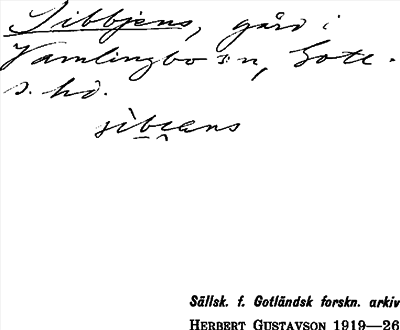 Sibbjens, gård i
Vamlingbo sn, Gotl.
s. hd.
sìbi̯ans
Sällsk. f. Gotländsk forskn. arkiv
HERBERT GUSTAVSON 1919—26